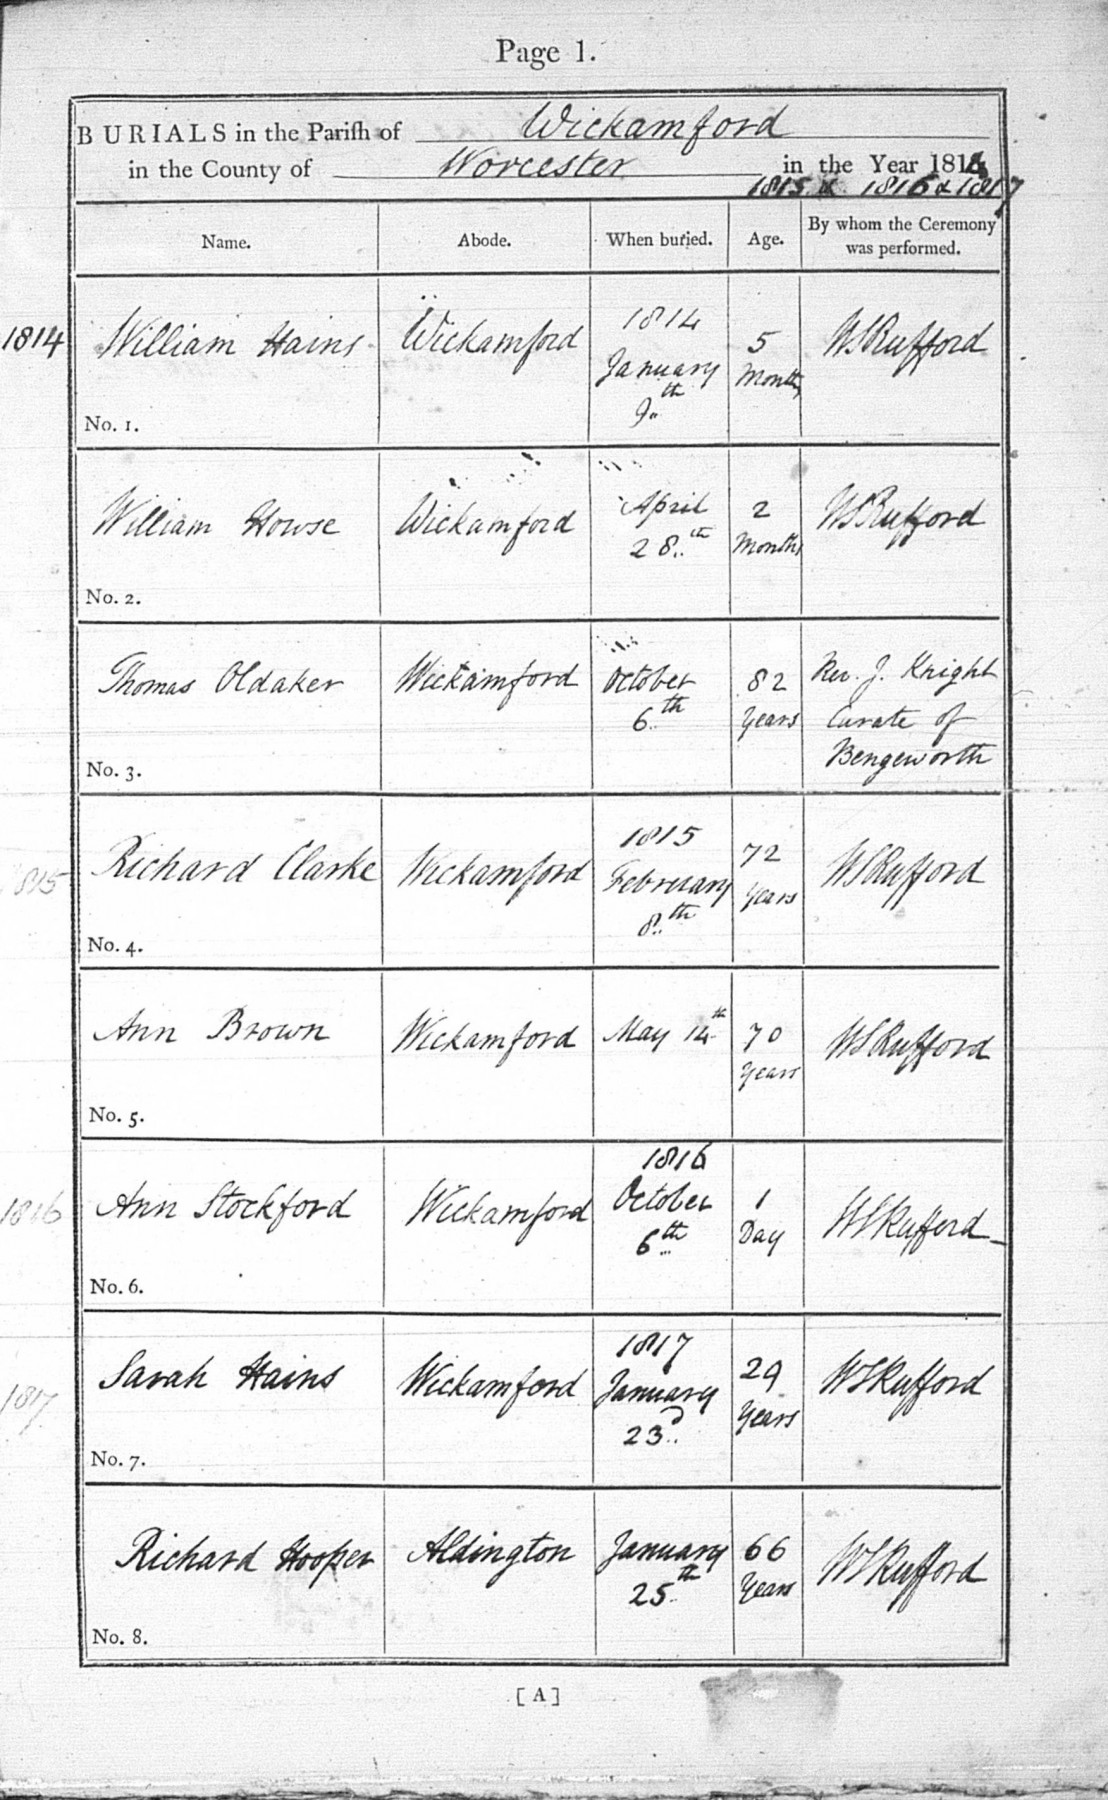 Page 1.
BURIALS in the Parish of Wickamford
in the County of Worcester in the Year 1814
1815 & 1816 & 1817
Name. Abode. When buried. Age. By whom the Ceremony was performed.
1814
William Hains
Wickamford
1814
January
9th
5
Months
WSRufford
No. 1.
William Howse
Wickamford
April
28th
2
Months
WSRufford
No. 2.
Thomas Oldaker
Wickamford
October
6th
82
Years
Rev. J. Knight
Curate of
Bengeworth
No. 3.
1815
Richard Clarke
Wickamford
1815
February
8th
72
Years
WSRufford
No. 4.
Ann Brown
Wickamford
May 14th
70
Years
WSRufford
No. 5.
1816
Ann Stockford
Wickamford
1816
October
6th
1
Day
WSRufford
No. 6.
1817
Sarah Hains
Wickamford
1817
January
23d
29
Years
WSRufford
No. 7.
Richard Hooper
Aldington
January
25th
66
Years
WSRufford
No. 8.
[A]